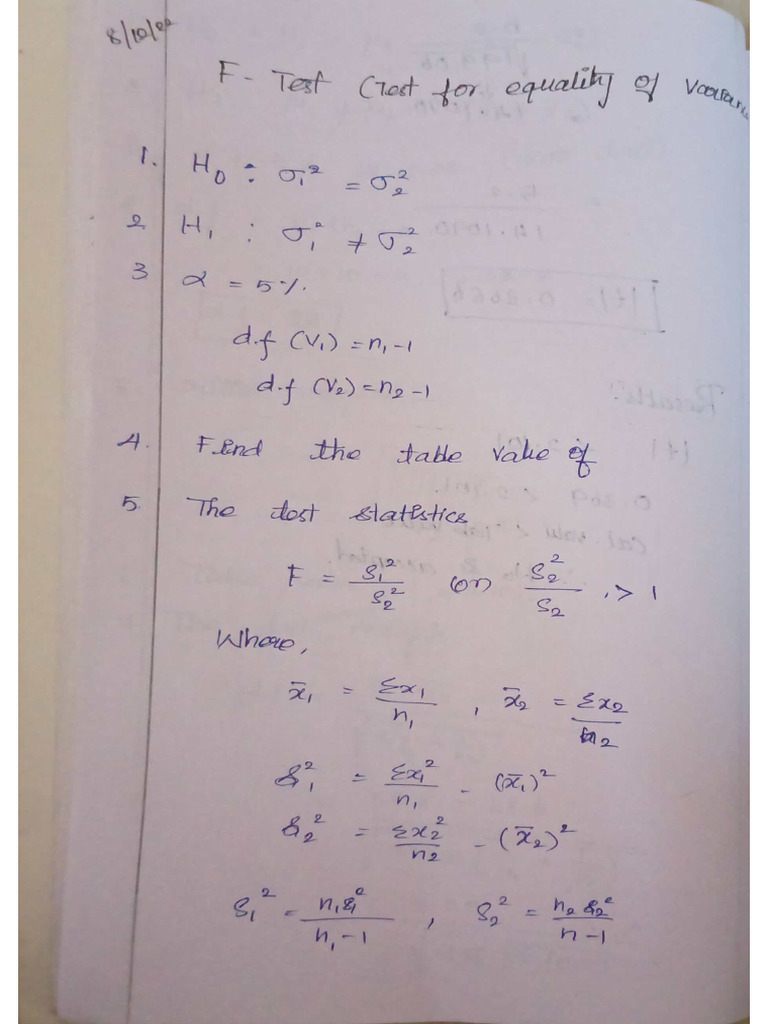 8/10/22
F - Test (Test for equality of Varian
1. H₀ : σ₁² = σ₂²
2 H₁ : σ₁² ≠ σ₂²
3 α = 5%.
d.f (V₁) = n₁ - 1
d.f (V₂) = n₂ - 1
4. Find the table value of
5. The test statistics
F = S₁²/S₂² (or) S₂²/S₂ , > 1
Where,
x̄₁ = Σx₁/n₁ , x̄₂ = Σx₂/n₂
s₁² = Σx₁²/n₁ - (x̄₁)²
s₂² = Σx₂²/n₂ - (x̄₂)²
S₁² = n₁s₁²/n₁-1 , S₂² = n₂s₂²/n-1